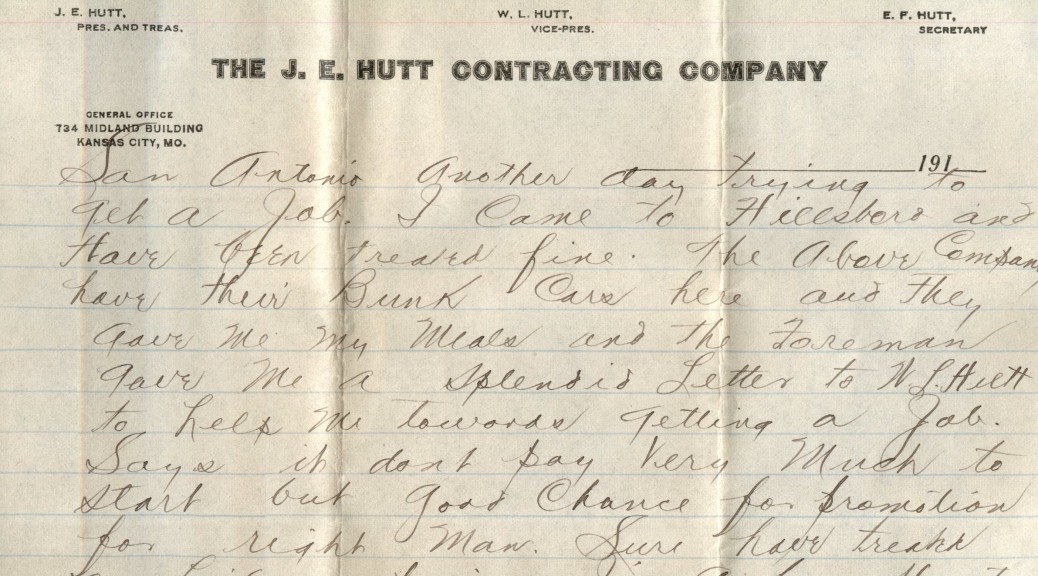 J. E. HUTT, W. L. HUTT, E. F. HUTT,
PRES. AND TREAS. VICE-PRES. SECRETARY
THE J. E. HUTT CONTRACTING COMPANY
GENERAL OFFICE
734 MIDLAND BUILDING
KANSAS CITY, MO.
191
San Antonio Another day trying to
get a Job. I Came to Hillsboro and
Have been treated fine. The Above Company
have their Bunk Cars here and They
Gave Me My Meals and the Foreman
Gave Me a Splendid Letter to W.L. Hutt
to help Me towards getting a Job.
Says it dont pay Very Much to
start but good Chance for promotion
for right Man. Sure have